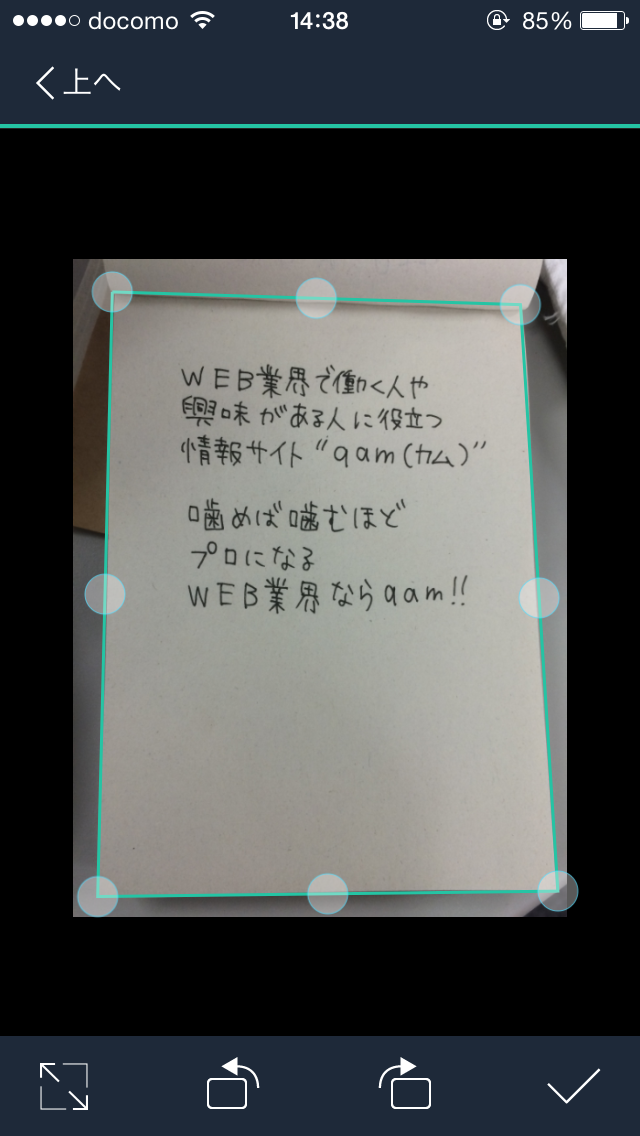 docomo 14:38 85%
上へ
WEB業界で働く人や
興味がある人に役立つ
情報サイト“qam(カム)”
噛めば噛むほど
プロになる
WEB業界ならqam!!